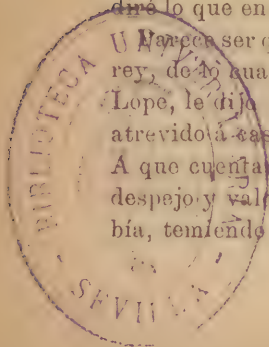 diré lo que en
Parece ser
rey, de lo cua
Lope, le dijo
atrevido á cas
Á que cuenta
despejo y val
bía, temiendo
BIBLIOTECA UNI
SEVILLA